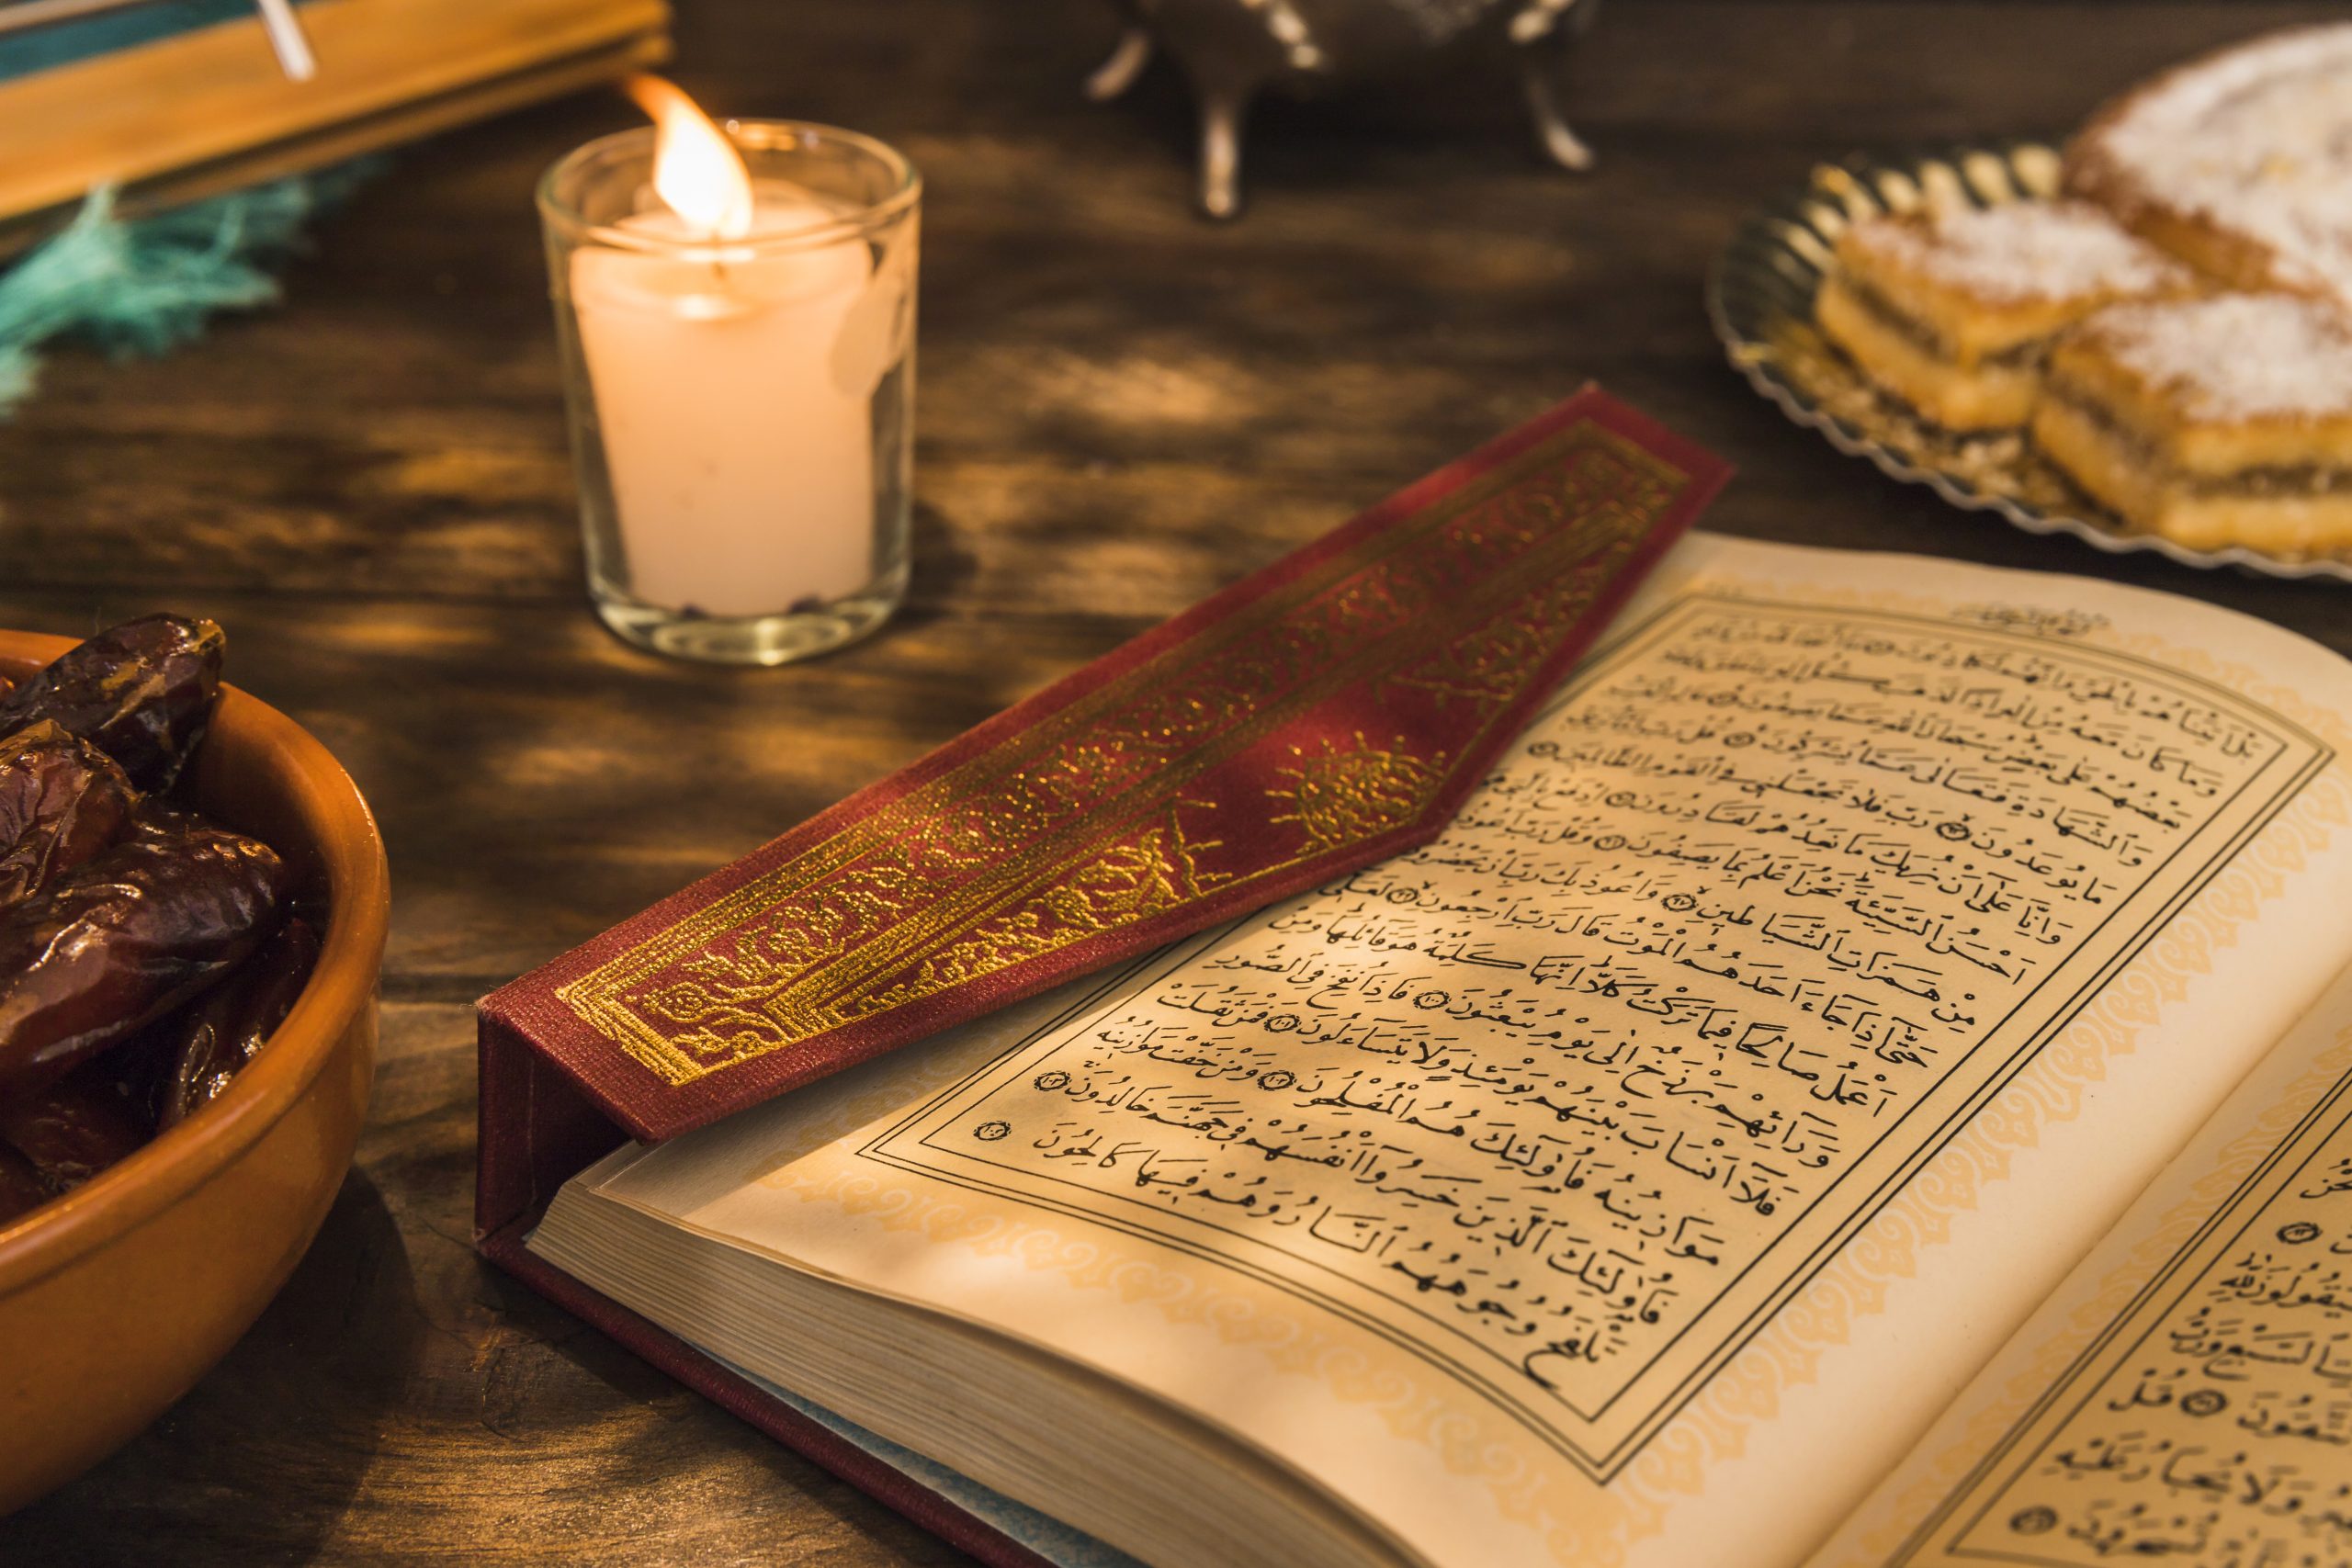 بَلْ اَتَيْنَاهُمْ بِالْحَقِّ وَاِنَّهُمْ لَكَاذِبُونَ
وَمَا كَانَ مَعَهُ مِنْ اِلٰهٍ اِذًا لَذَهَبَ كُلُّ اِلٰهٍ بِمَا خَلَقَ
بَعْضُهُمْ عَلٰى بَعْضٍ سُبْحَانَ اللّٰهِ عَمَّا يَصِفُونَ ﴿٩١﴾ عَالِمِ الْغَيْبِ
وَالشَّهَادَةِ فَتَعَالٰى عَمَّا يُشْرِكُونَ ﴿٩٢﴾ قُلْ رَبِّ اِمَّا تُرِيَنِّي
مَا يُوعَدُونَ ﴿٩٣﴾ رَبِّ فَلَا تَجْعَلْنِي فِي الْقَوْمِ الظَّالِمِينَ ﴿٩٤﴾
وَاِنَّا عَلٰٓى اَنْ نُرِيَكَ مَا نَعِدُهُمْ لَقَادِرُونَ ﴿٩٥﴾ اِدْفَعْ بِالَّتِي هِيَ
اَحْسَنُ السَّيِّئَةَ نَحْنُ اَعْلَمُ بِمَا يَصِفُونَ ﴿٩٦﴾ وَقُلْ رَبِّ اَعُوذُ
مِنْ هَمَزَاتِ الشَّيَاطِينِ ﴿٩٧﴾ وَاَعُوذُ بِكَ رَبِّ اَنْ يَحْضُرُونِ
حَتّٰٓى اِذَا جَاءَ اَحَدَهُمُ الْمَوْتُ قَالَ رَبِّ ارْجِعُونِ ﴿٩٩﴾ لَعَلِّٓي
اَعْمَلُ صَالِحًا فِيمَا تَرَكْتُ كَلَّا اِنَّهَا كَلِمَةٌ هُوَ قَائِلُهَا وَمِنْ
وَرَائِهِمْ بَرْزَخٌ اِلٰى يَوْمِ يُبْعَثُونَ ﴿١٠٠﴾ فَاِذَا نُفِخَ فِي الصُّورِ
فَلَا اَنْسَابَ بَيْنَهُمْ يَوْمَئِذٍ وَلَا يَتَسَاءَلُونَ ﴿١٠١﴾ فَمَنْ ثَقُلَتْ
مَوَازِينُهُ فَاُولٰئِكَ هُمُ الْمُفْلِحُونَ ﴿١٠٢﴾ وَمَنْ خَفَّتْ مَوَازِينُهُ
فَاُولٰئِكَ الَّذِينَ خَسِرُوا اَنْفُسَهُمْ فِي جَهَنَّمَ خَالِدُونَ ﴿١٠٣﴾
تَلْفَحُ وُجُوهَهُمُ النَّارُ وَهُمْ فِيهَا كَالِحُونَ ﴿١٠٤﴾
سَيَقُولُونَ لِلّٰهِ
قُلْ